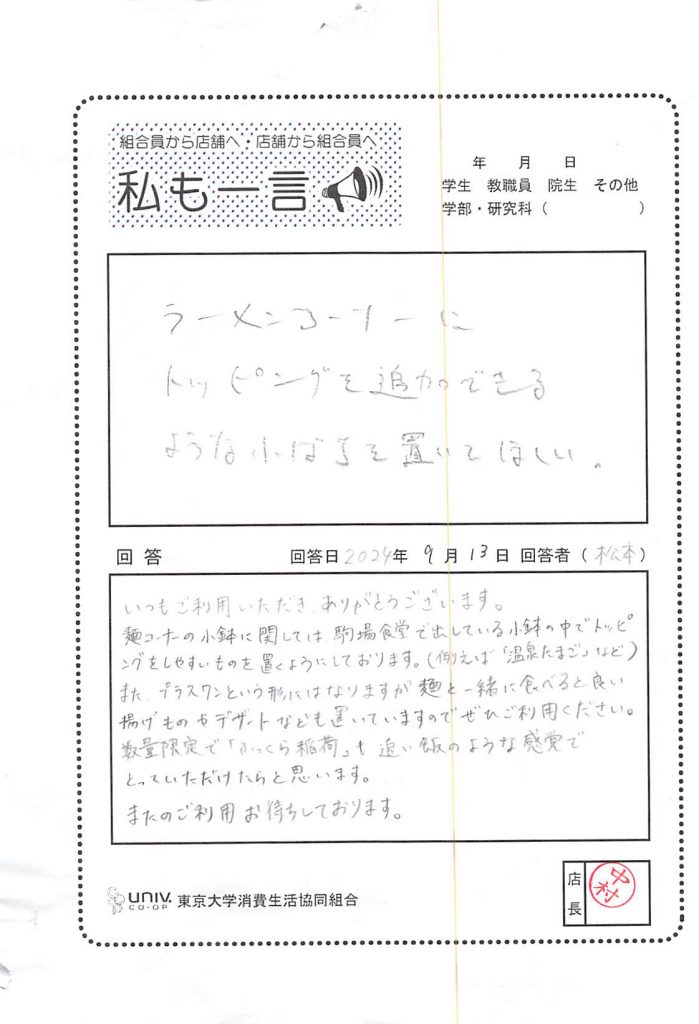 組合員から店舗へ・店舗から組合員へ
私も一言
年 月 日
学生 教職員 院生 その他
学部・研究科（ ）
ラーメンコーナーに
トッピングを追加できる
ような小ばちを置いてほしい。
回答 回答日2024年 9月13日 回答者（松本）
いつもご利用いただき、ありがとうございます。
麺コーナーの小鉢に関しては、駒場食堂で出している小鉢の中でトッピ
ングをしやすいものを置くようにしております。（例えば「温泉たまご」など）
また、プラスワンという形にはなりますが麺と一緒に食べると良い
揚げものやデザートなども置いていますのでぜひご利用ください。
数量限定で「ふっくら稲荷」も追い飯のような感覚で
とっていただけたらと思います。
またのご利用お待ちしております。
UNIV. CO-OP 東京大学消費生活協同組合
店長 中村